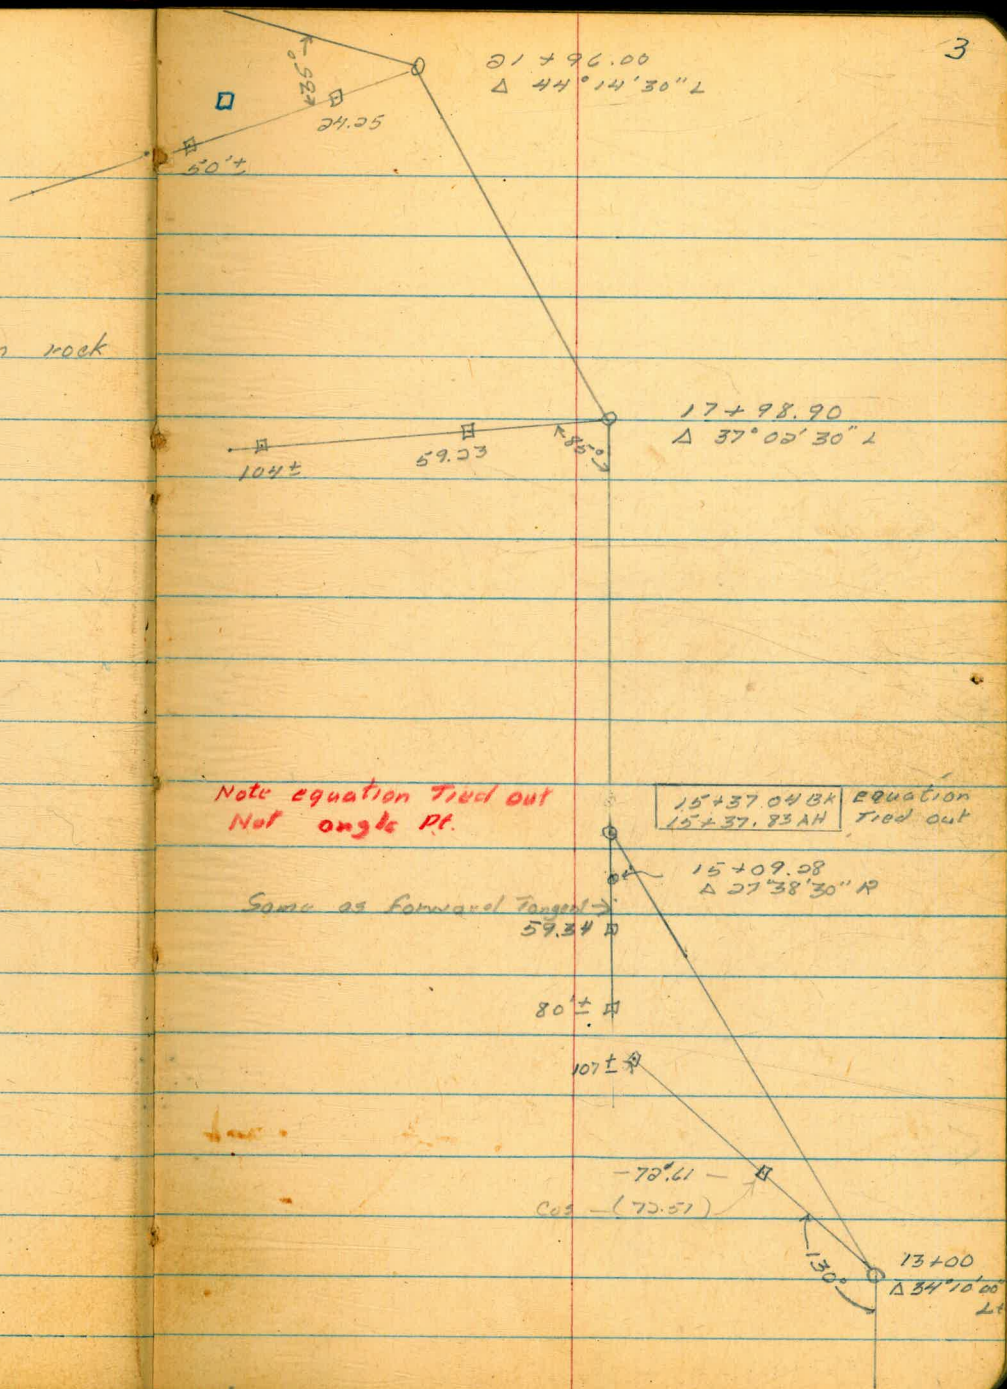 3
21 + 96.00
Δ 44°14'30" L
35°
24.25
50'±
rock
17 + 98.90
Δ 37°02'30" L
85°
59.23
104±
Note equation Tied out
Not angle Pt.
15+37.04 BK
15+37.83 AH
Equation
Tied out
15+09.28
Δ 27°38'30" R
Same as forward Tangent→
59.34
80'±
107±
-72.61-
Cos -(72.51)
130°
13+00
Δ 34°10'00"
Lt